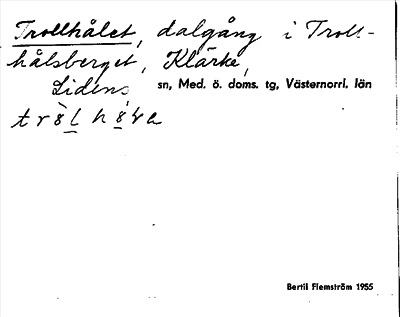 Trollhålet, dalgång i Troll-
hålsberget, Klärke,
Lidens sn, Med. ö. doms. tg, Västernorrl. län
Bertil Flemström 1955